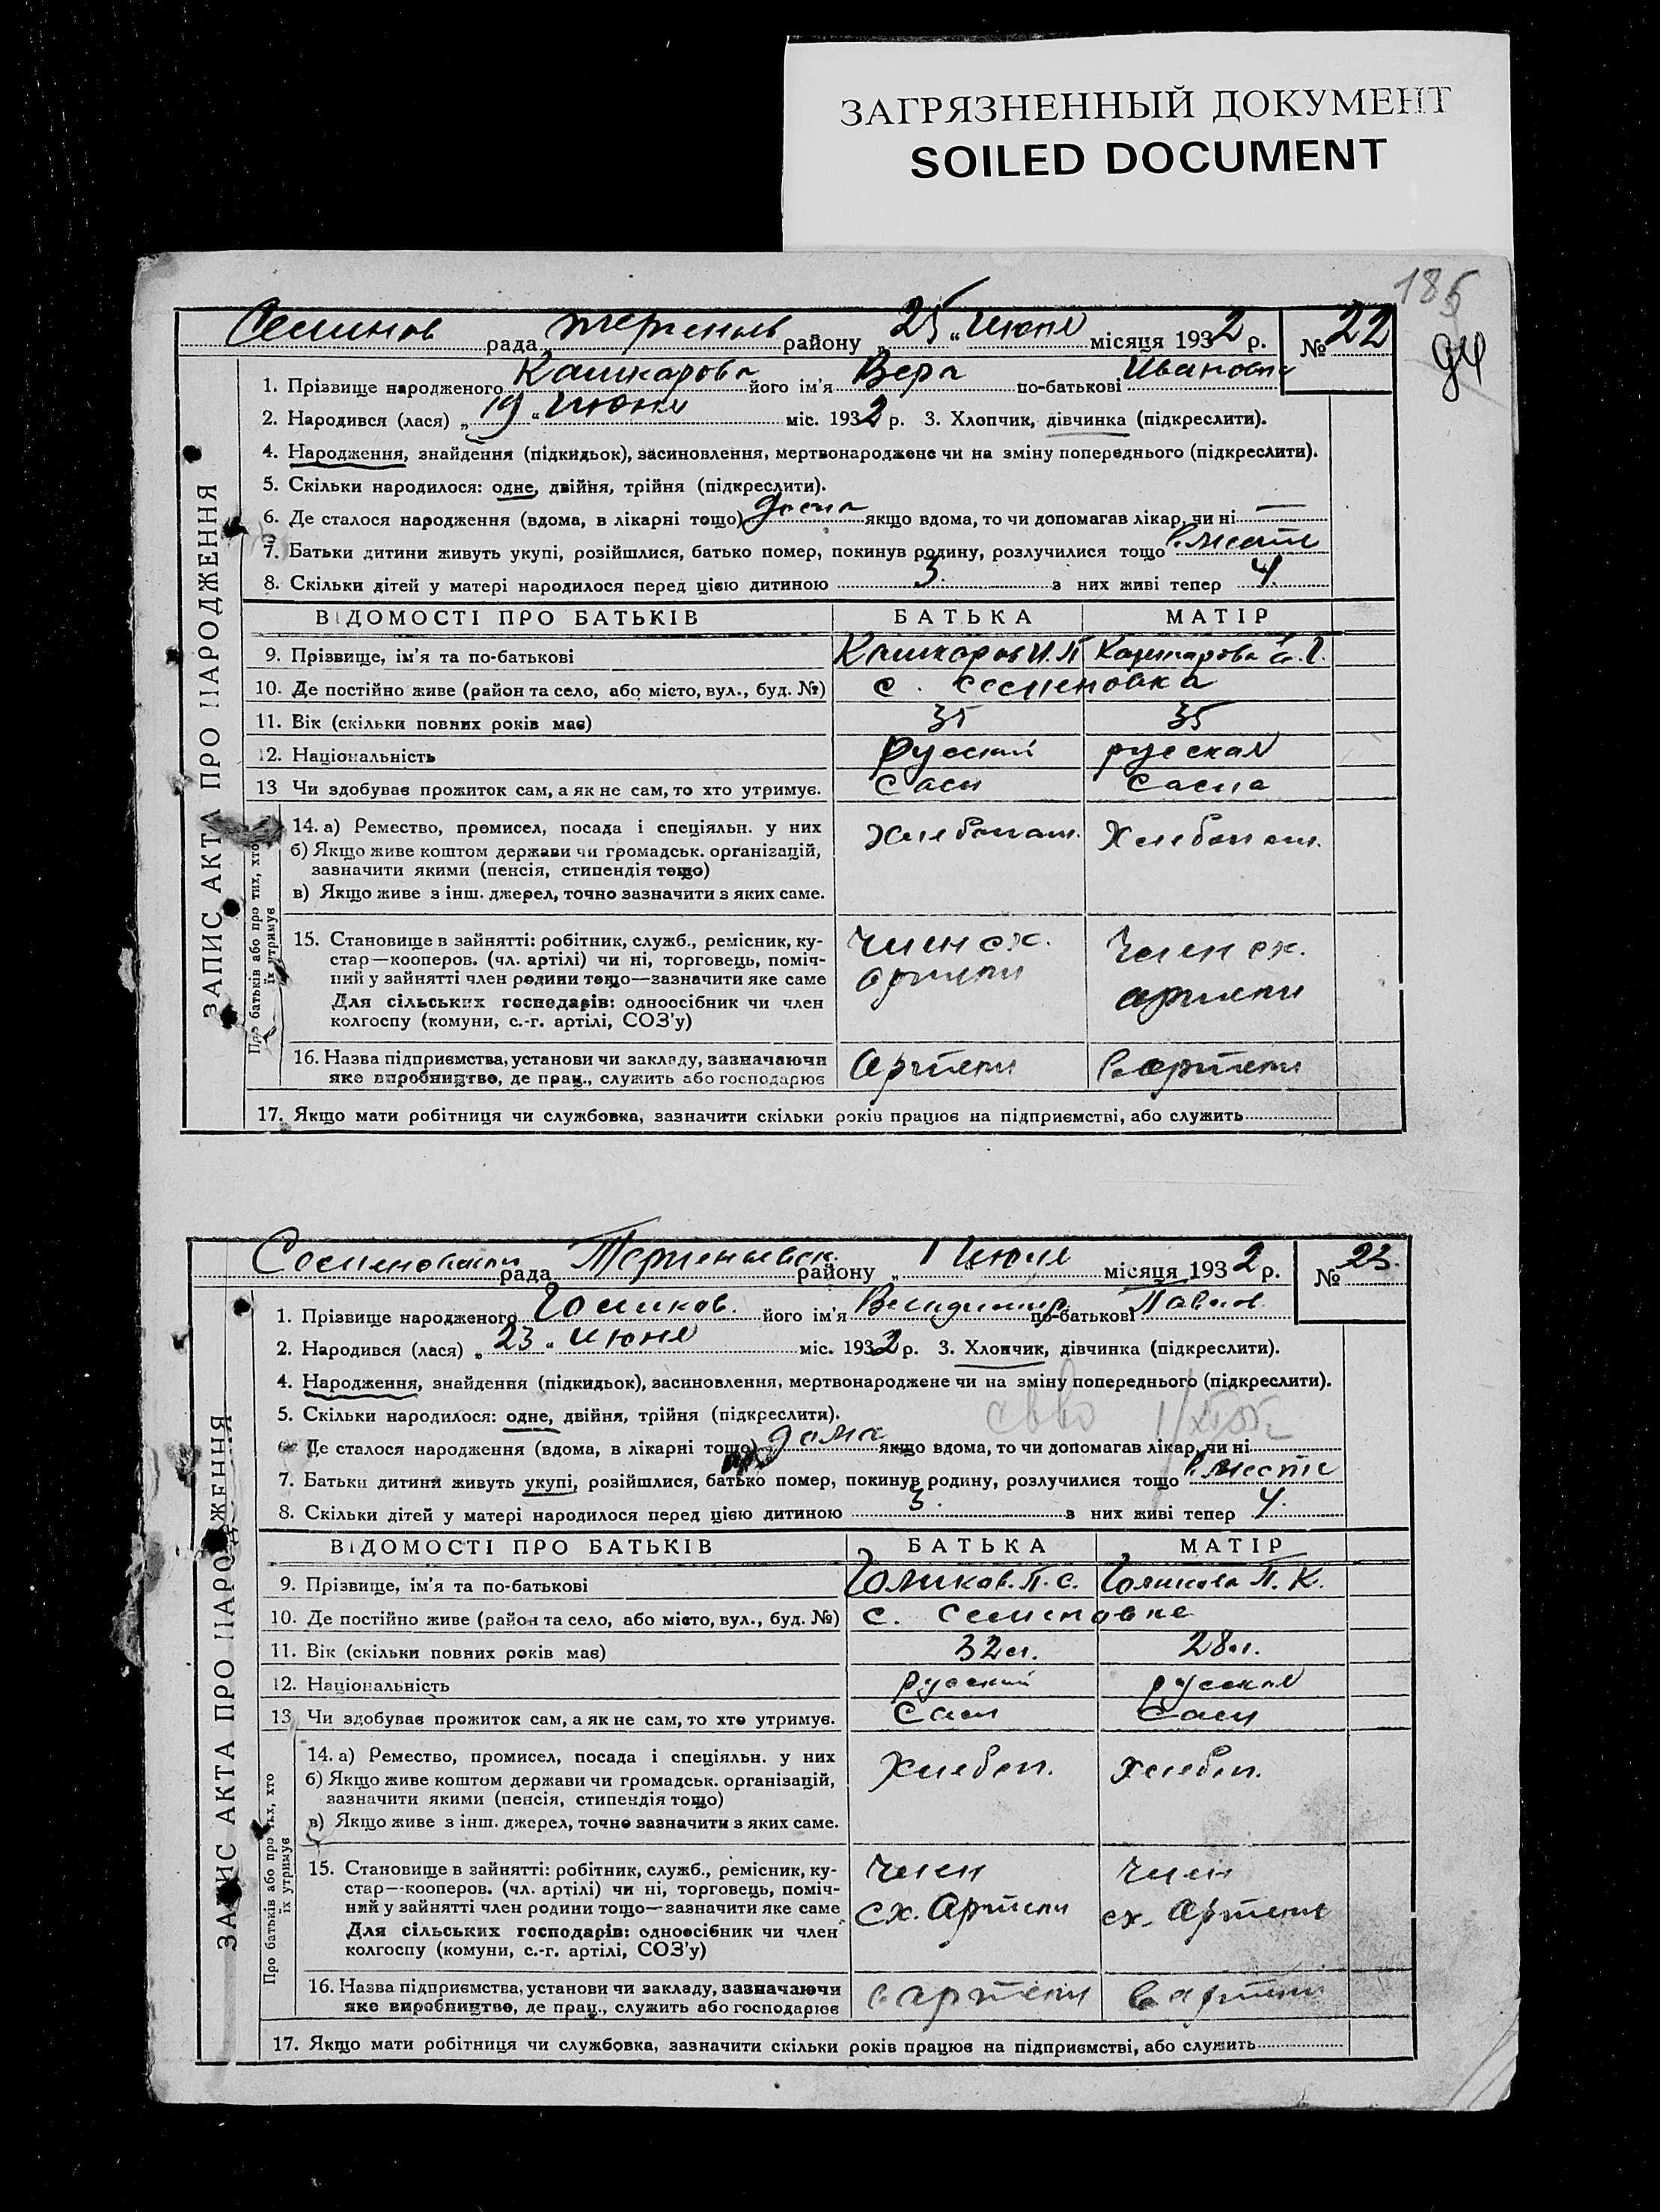 ЗАГРЯЗНЕННЫЙ ДОКУМЕНТ
SOILED DOCUMENT
185
94
Семинов рада района „25“ Июня місяця 1932 р. № 22
ЗАПИС АКТА ПРО НАРОДЖЕННЯ
1. Прізвище народженого Кашкарова його ім'я Вера по-батькові Ивановна
2. Народився (лася) „19“ Июня міс. 1932 р. 3. Хлопчик, дівчинка (підкреслити).
4. Народження, знайдення (підкидьок), засиновлення, мертвонароджене чи на зміну попереднього (підкреслити).
5. Скільки народилося: одне, двійня, трійня (підкреслити).
6. Де сталося народження (вдома, в лікарні тощо) дома якщо вдома, то чи допомагав лікар, чи ні —
7. Батьки дитини живуть укупі, розійшлися, батько помер, покинув родину, розлучилися тощо вместе
8. Скільки дітей у матері народилося перед цією дитиною 3. з них живі тепер 4.
ВІДОМОСТІ ПРО БАТЬКІВ БАТЬКА МАТІР
9. Прізвище, ім'я та по-батькові Кашкаров И.П Кашкарова
10. Де постійно живе (район та село, або місто, вул., буд. №) с. Семеновка
11. Вік (скільки повних років має) 35 35
12. Національність Русский русская
13 Чи здобуває прожиток сам, а як не сам, то хто утримує. Сам Сама
Про батьків або про тих, хто їх утримує
14. а) Ремество, промисел, посада і спеціяльн. у них Хлебопаш. Хлебопаш.
б) Якщо живе коштом держави чи громадськ. організацій,
зазначити якими (пенсія, стипендія тощо)
в) Якщо живе з інш. джерел, точно зазначити з яких саме.
15. Становище в зайнятті: робітник, служб., ремісник, ку- член сх. Член сх.
стар—кооперов. (чл. артілі) чи ні, торговець, поміч- артели артели
ний у зайнятті член родини тощо—зазначити яке саме
Для сільських господарів: одноосібник чи член
колгоспу (комуни, с.-г. артілі, СОЗ'у)
16. Назва підприємства, установи чи закладу, зазначаючи Артели в артели
яке виробництво, де прац., служить або господарює
17. Якщо мати робітниця чи службовка, зазначити скільки років працює на підприємстві, або служить
рада району „1 Июля місяця 1932 р. № 23.
ЗАПИС АКТА ПРО НАРОДЖЕННЯ
1. Прізвище народженого Голиков. його ім'я Владимир по-батькові Павлов.
2. Народився (лася) „23“ Июня міс. 1932 р. 3. Хлопчик, дівчинка (підкреслити).
4. Народження, знайдення (підкидьок), засиновлення, мертвонароджене чи на зміну попереднього (підкреслити).
5. Скільки народилося: одне, двійня, трійня (підкреслити).
Де сталося народження (вдома, в лікарні тощо) дома якщо вдома, то чи допомагав лікар, чи ні
7. Батьки дитини живуть укупі, розійшлися, батько помер, покинув родину, розлучилися тощо вместе
8. Скільки дітей у матері народилося перед цією дитиною 3. з них живі тепер 4.
ВІДОМОСТІ ПРО БАТЬКІВ БАТЬКА МАТІР
9. Прізвище, ім'я та по-батькові Голиков. П. С. Голикова П. К.
10. Де постійно живе (район та село, або місто, вул., буд. №) с. Семеновке
11. Вік (скільки повних років має) 32 л. 28 л.
12. Національність русский русская
13 Чи здобуває прожиток сам, а як не сам, то хто утримує. Сам Сам
Про батьків або про тих, хто їх утримує
14. а) Ремество, промисел, посада і спеціяльн. у них Хлебоп. Хлебоп.
б) Якщо живе коштом держави чи громадськ. організацій,
зазначити якими (пенсія, стипендія тощо)
в) Якщо живе з інш. джерел, точно зазначити з яких саме.
15. Становище в зайнятті: робітник, служб., ремісник, ку- член член
стар—кооперов. (чл. артілі) чи ні, торговець, поміч- сх. Артели сх. Артели
ний у зайнятті член родини тощо—зазначити яке саме
Для сільських господарів: одноосібник чи член
колгоспу (комуни, с.-г. артілі, СОЗ'у)
16. Назва підприємства, установи чи закладу, зазначаючи в артели в артели
яке виробництво, де прац., служить або господарює
17. Якщо мати робітниця чи службовка, зазначити скільки років працює на підприємстві, або служить